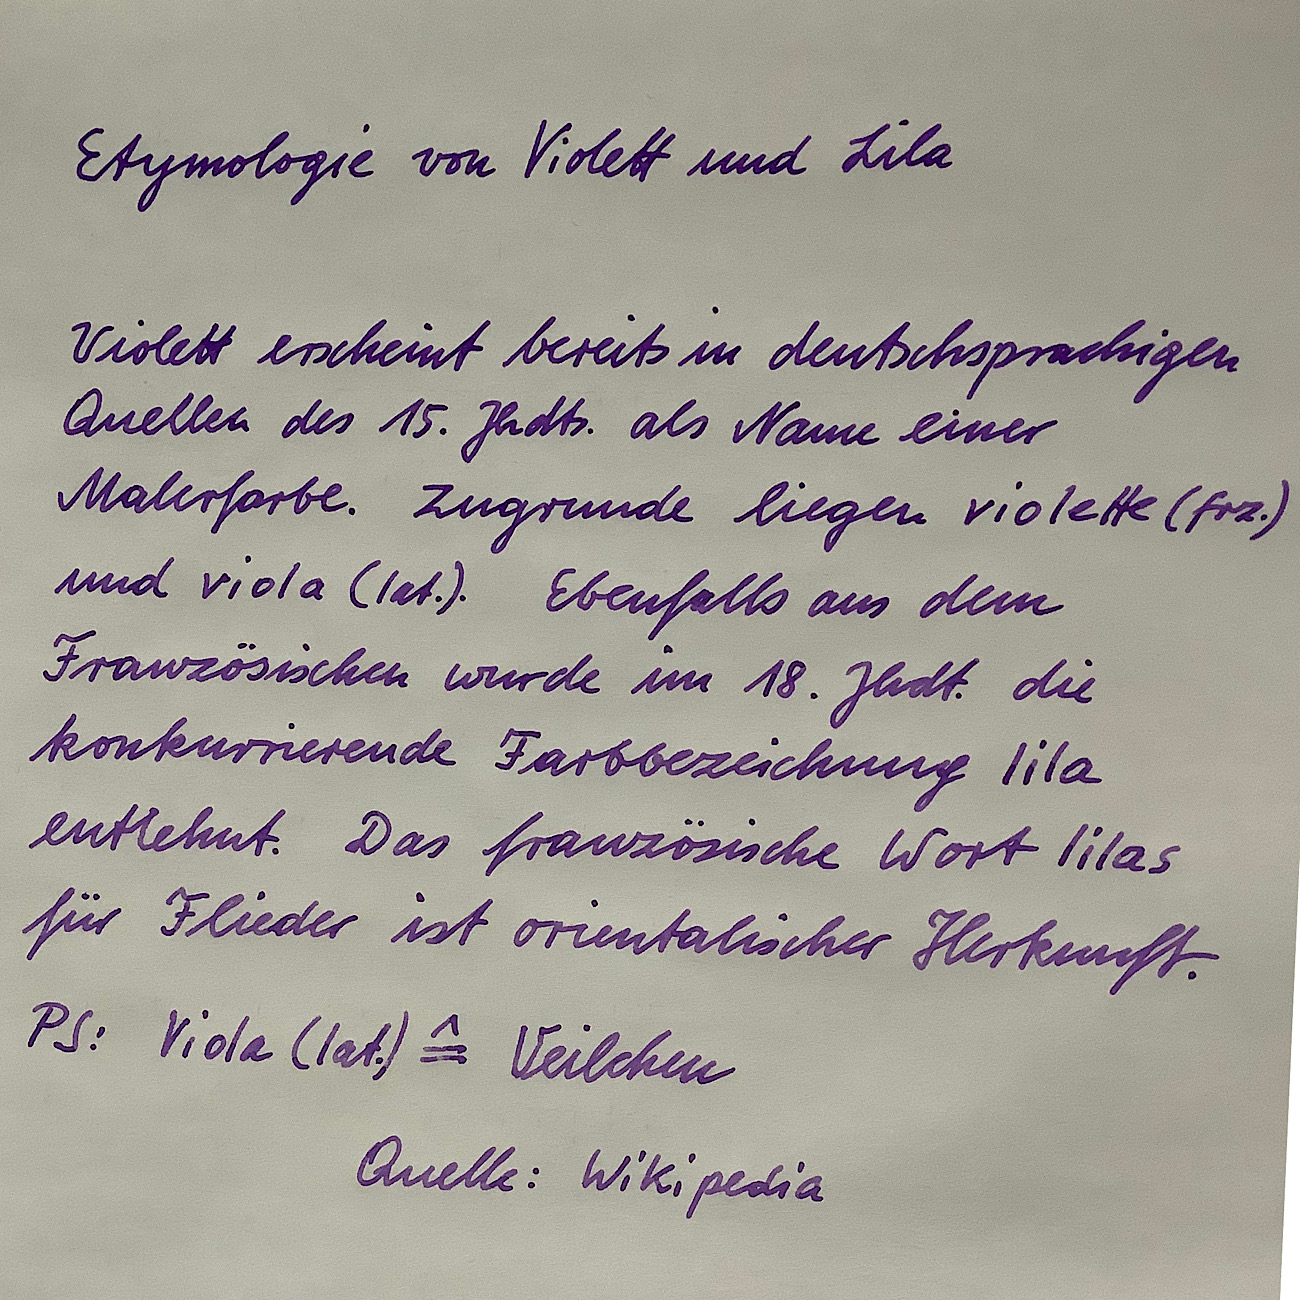 Etymologie von Violett und Lila
Violett erscheint bereits in deutschsprachigen
Quellen des 15. Jhdts. als Name einer
Malerfarbe. Zugrunde liegen violette (frz.)
und viola (lat.). Ebenfalls aus dem
Französischen wurde im 18. Jhdt. die
konkurrierende Farbbezeichnung lila
entlehnt. Das französische Wort lilas
für Flieder ist orientalischer Herkunft.
PS: Viola (lat.) ≙ Veilchen
Quelle: Wikipedia